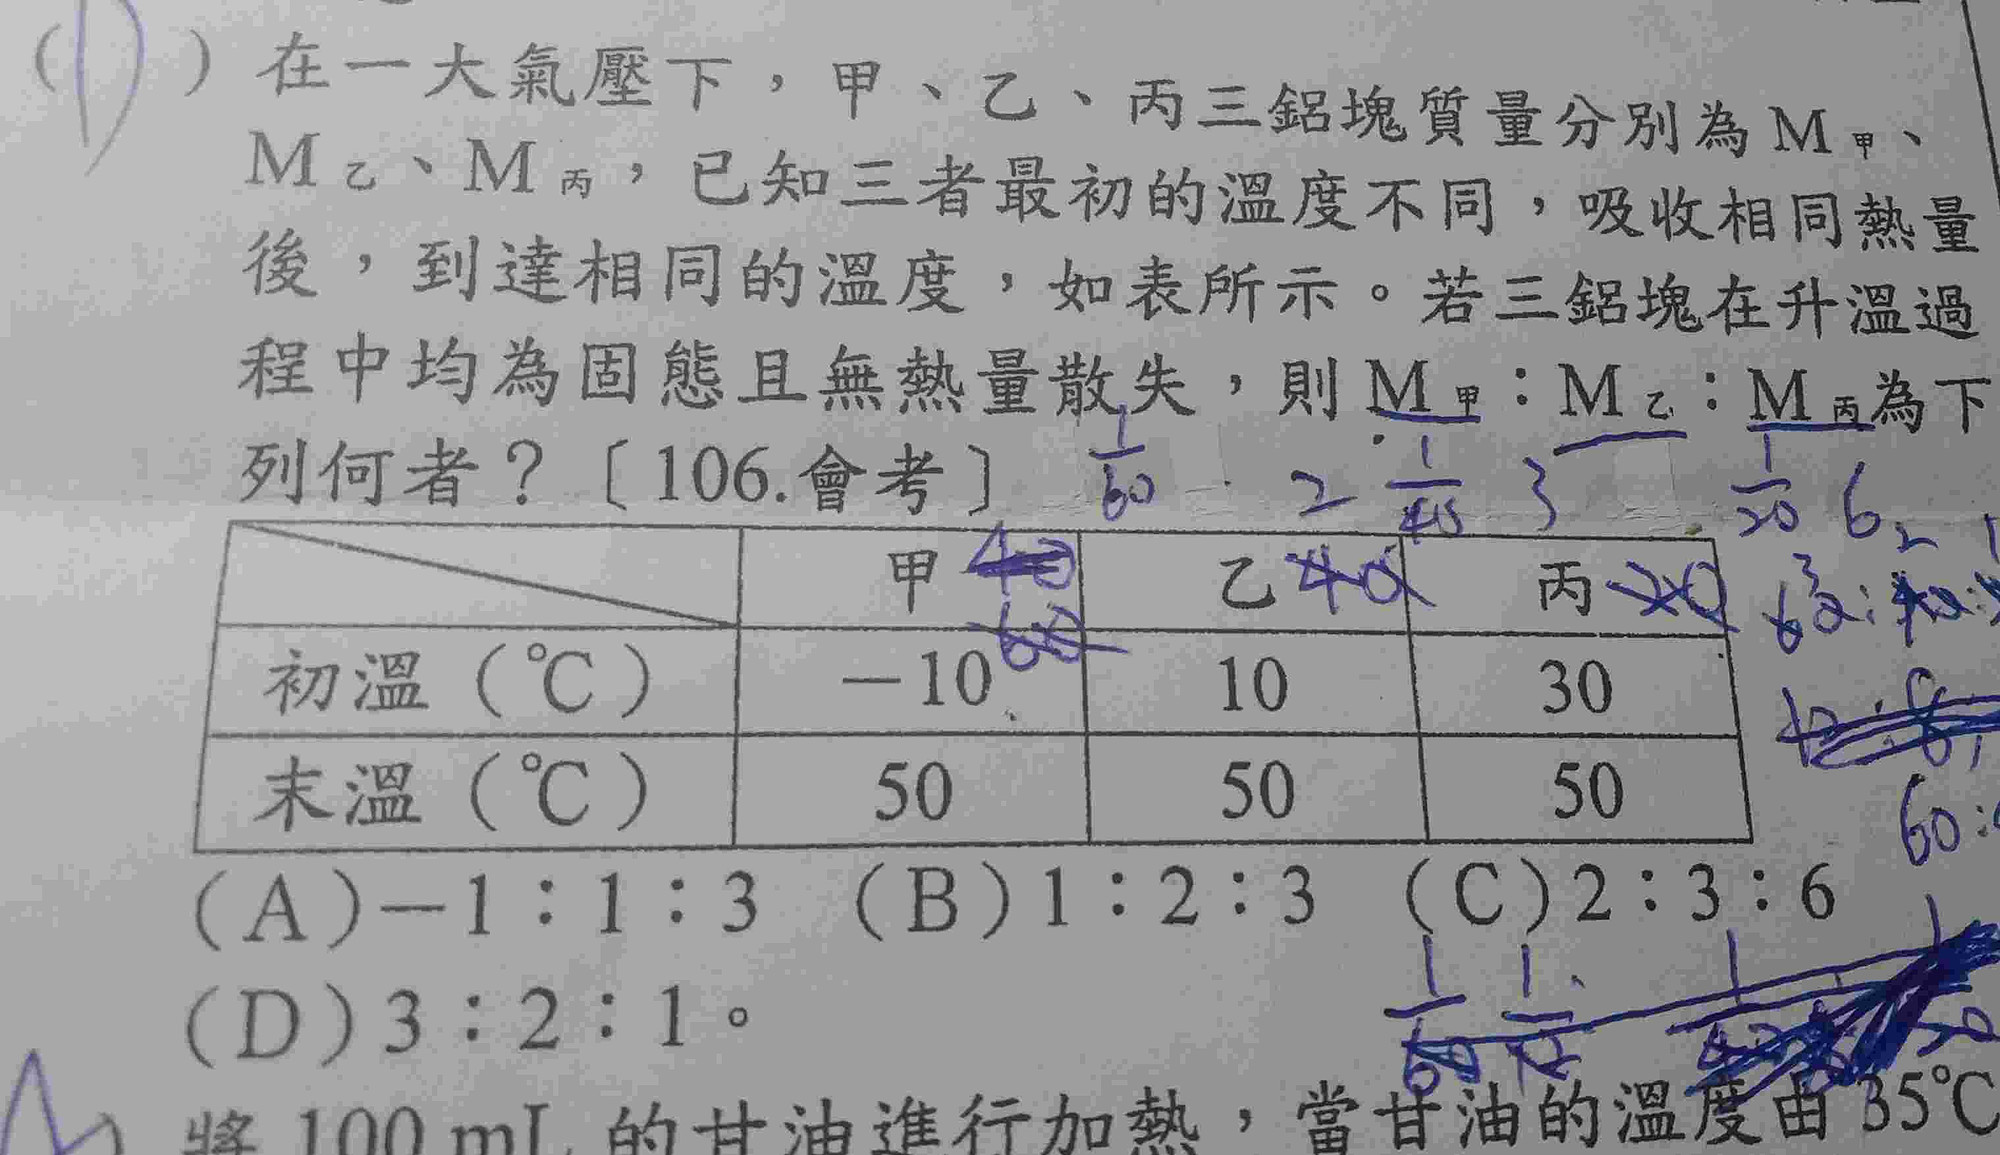 ( D ) 在一大氣壓下，甲、乙、丙三鋁塊質量分別為M甲、
M乙、M丙，已知三者最初的溫度不同，吸收相同熱量
後，到達相同的溫度，如表所示。若三鋁塊在升溫過
程中均為固態且無熱量散失，則M甲：M乙：M丙為下
列何者？〔106.會考〕
1/60 2 3 1/20 6
甲 乙 40 丙 20
60
初溫（℃） －10 10 30
末溫（℃） 50 50 50
60:
（A）－1：1：3 （B）1：2：3 （C）2：3：6
（D）3：2：1。
將 100 mL 的甘油進行加熱，當甘油的溫度由 35℃